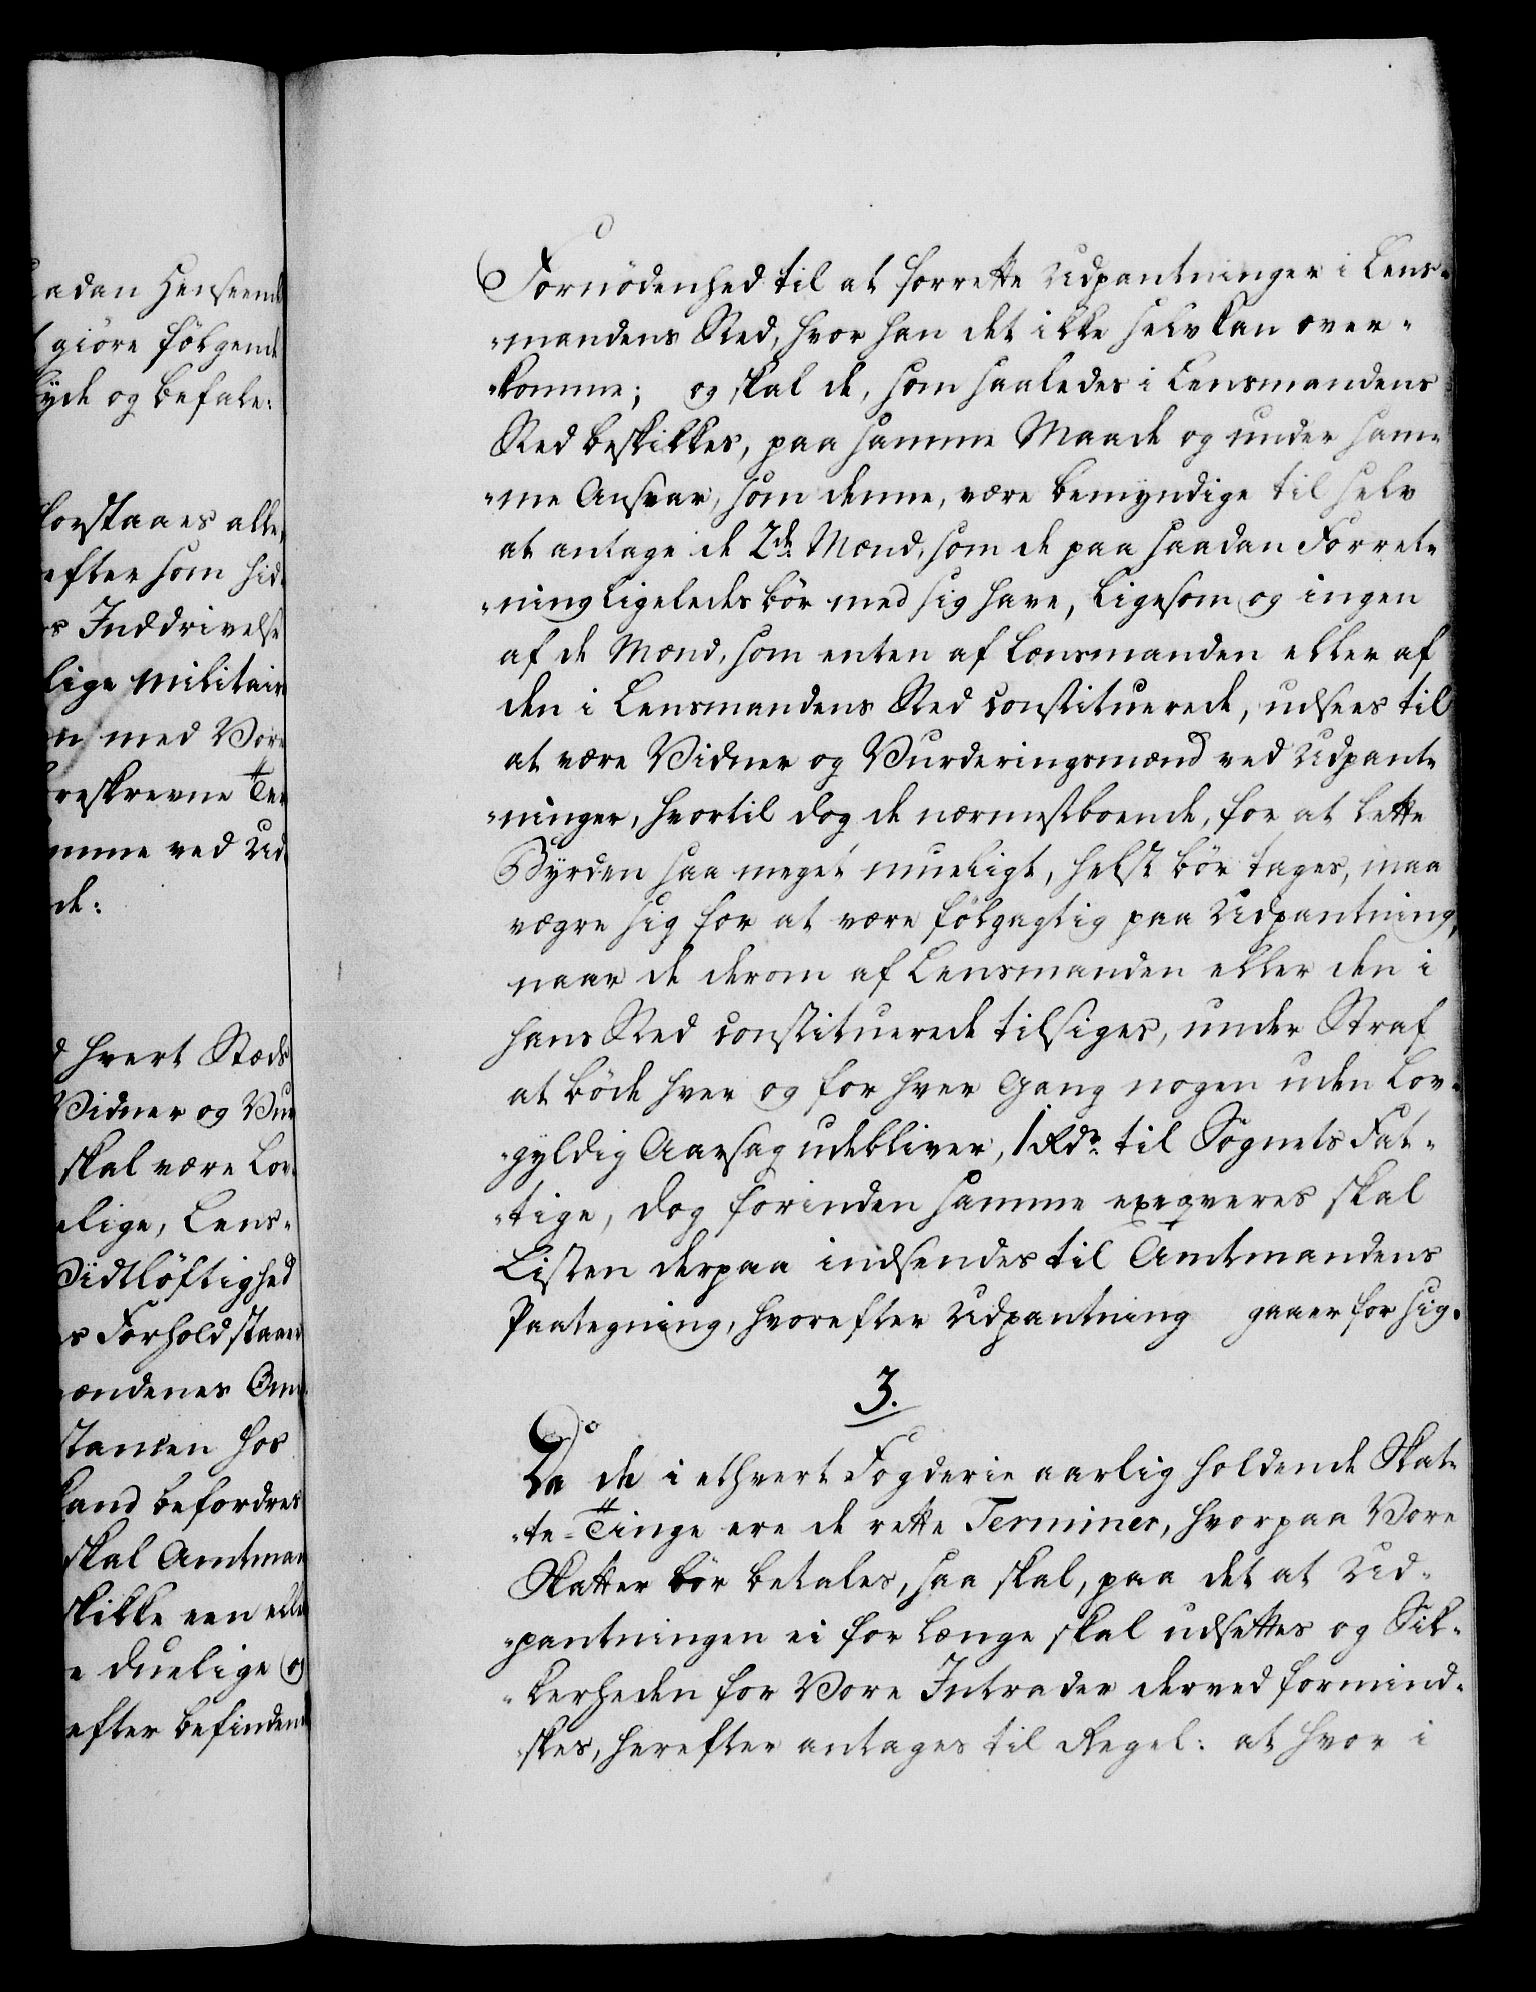 adan Henseende
giöre følgende
byde og befale:
forstaaes alle
efter som hid-
s Inddrivelse
lige Militair
n med Vore
reskrevne Ter
mme ved Ud-
de:
hvert Stæds
Vidner og Vur
skal være Lov
elige, Lens-
Vidtløftighed
s Forhold staaer
mændenes Am
stancen hos
kand befordres
skal Amtman
skikke een elle
e duelige og
efter befindende
Fornödenhed til at forrette Udpantninger i Lens-
-mandens Sted, hvor han det ikke selv kan over-
-komme; og skal de, som saaledes i Lensmandens
Sted beskikkes, paa samme Maade og under sam-
-me Ansvar, som denne, være bemyndige til selv
at antage de 2de Mænd, som de paa saadan Forret-
-ning ligeledes bör med sig have, ligesom og ingen
af de Mænd, som enten af Lænsmanden eller af
den i Lensmandens Sted constituerede, udsees til
at være Vidner og Vurderingsmænd ved Udpant-
-ninger, hvortil dog de nærmestboende, for at lette
Byrden saa meget mueligt, helst bör tages, maa
vægre sig for at være følgagtig paa Udpantning,
naar de derom af Lensmanden eller den i
hans Sted constituerede tilsiges, under Straf
at böde hver og for hver Gang nogen uden Lov-
-gyldig Aarsag udebliver, 1 Rdr til Sognets Fat-
-tige, dog forinden samme exeqveres skal
Listen derpaa indsendes til Amtmandens
Paategning, hvorefter Udpantning gaaer for sig.
3.
Da de i ethvert Fogderie aarlig holdende Skat-
-te-Tinge ere de rette Terminer, hvorpaa Vore
Skatter bör betales, saa skal, paa det at Ud-
-pantningen ei for længe skal udsettes og Sik-
-kerheden for Vore Intrader derved formind-
-skes, herefter antages til Regel: at hvor i